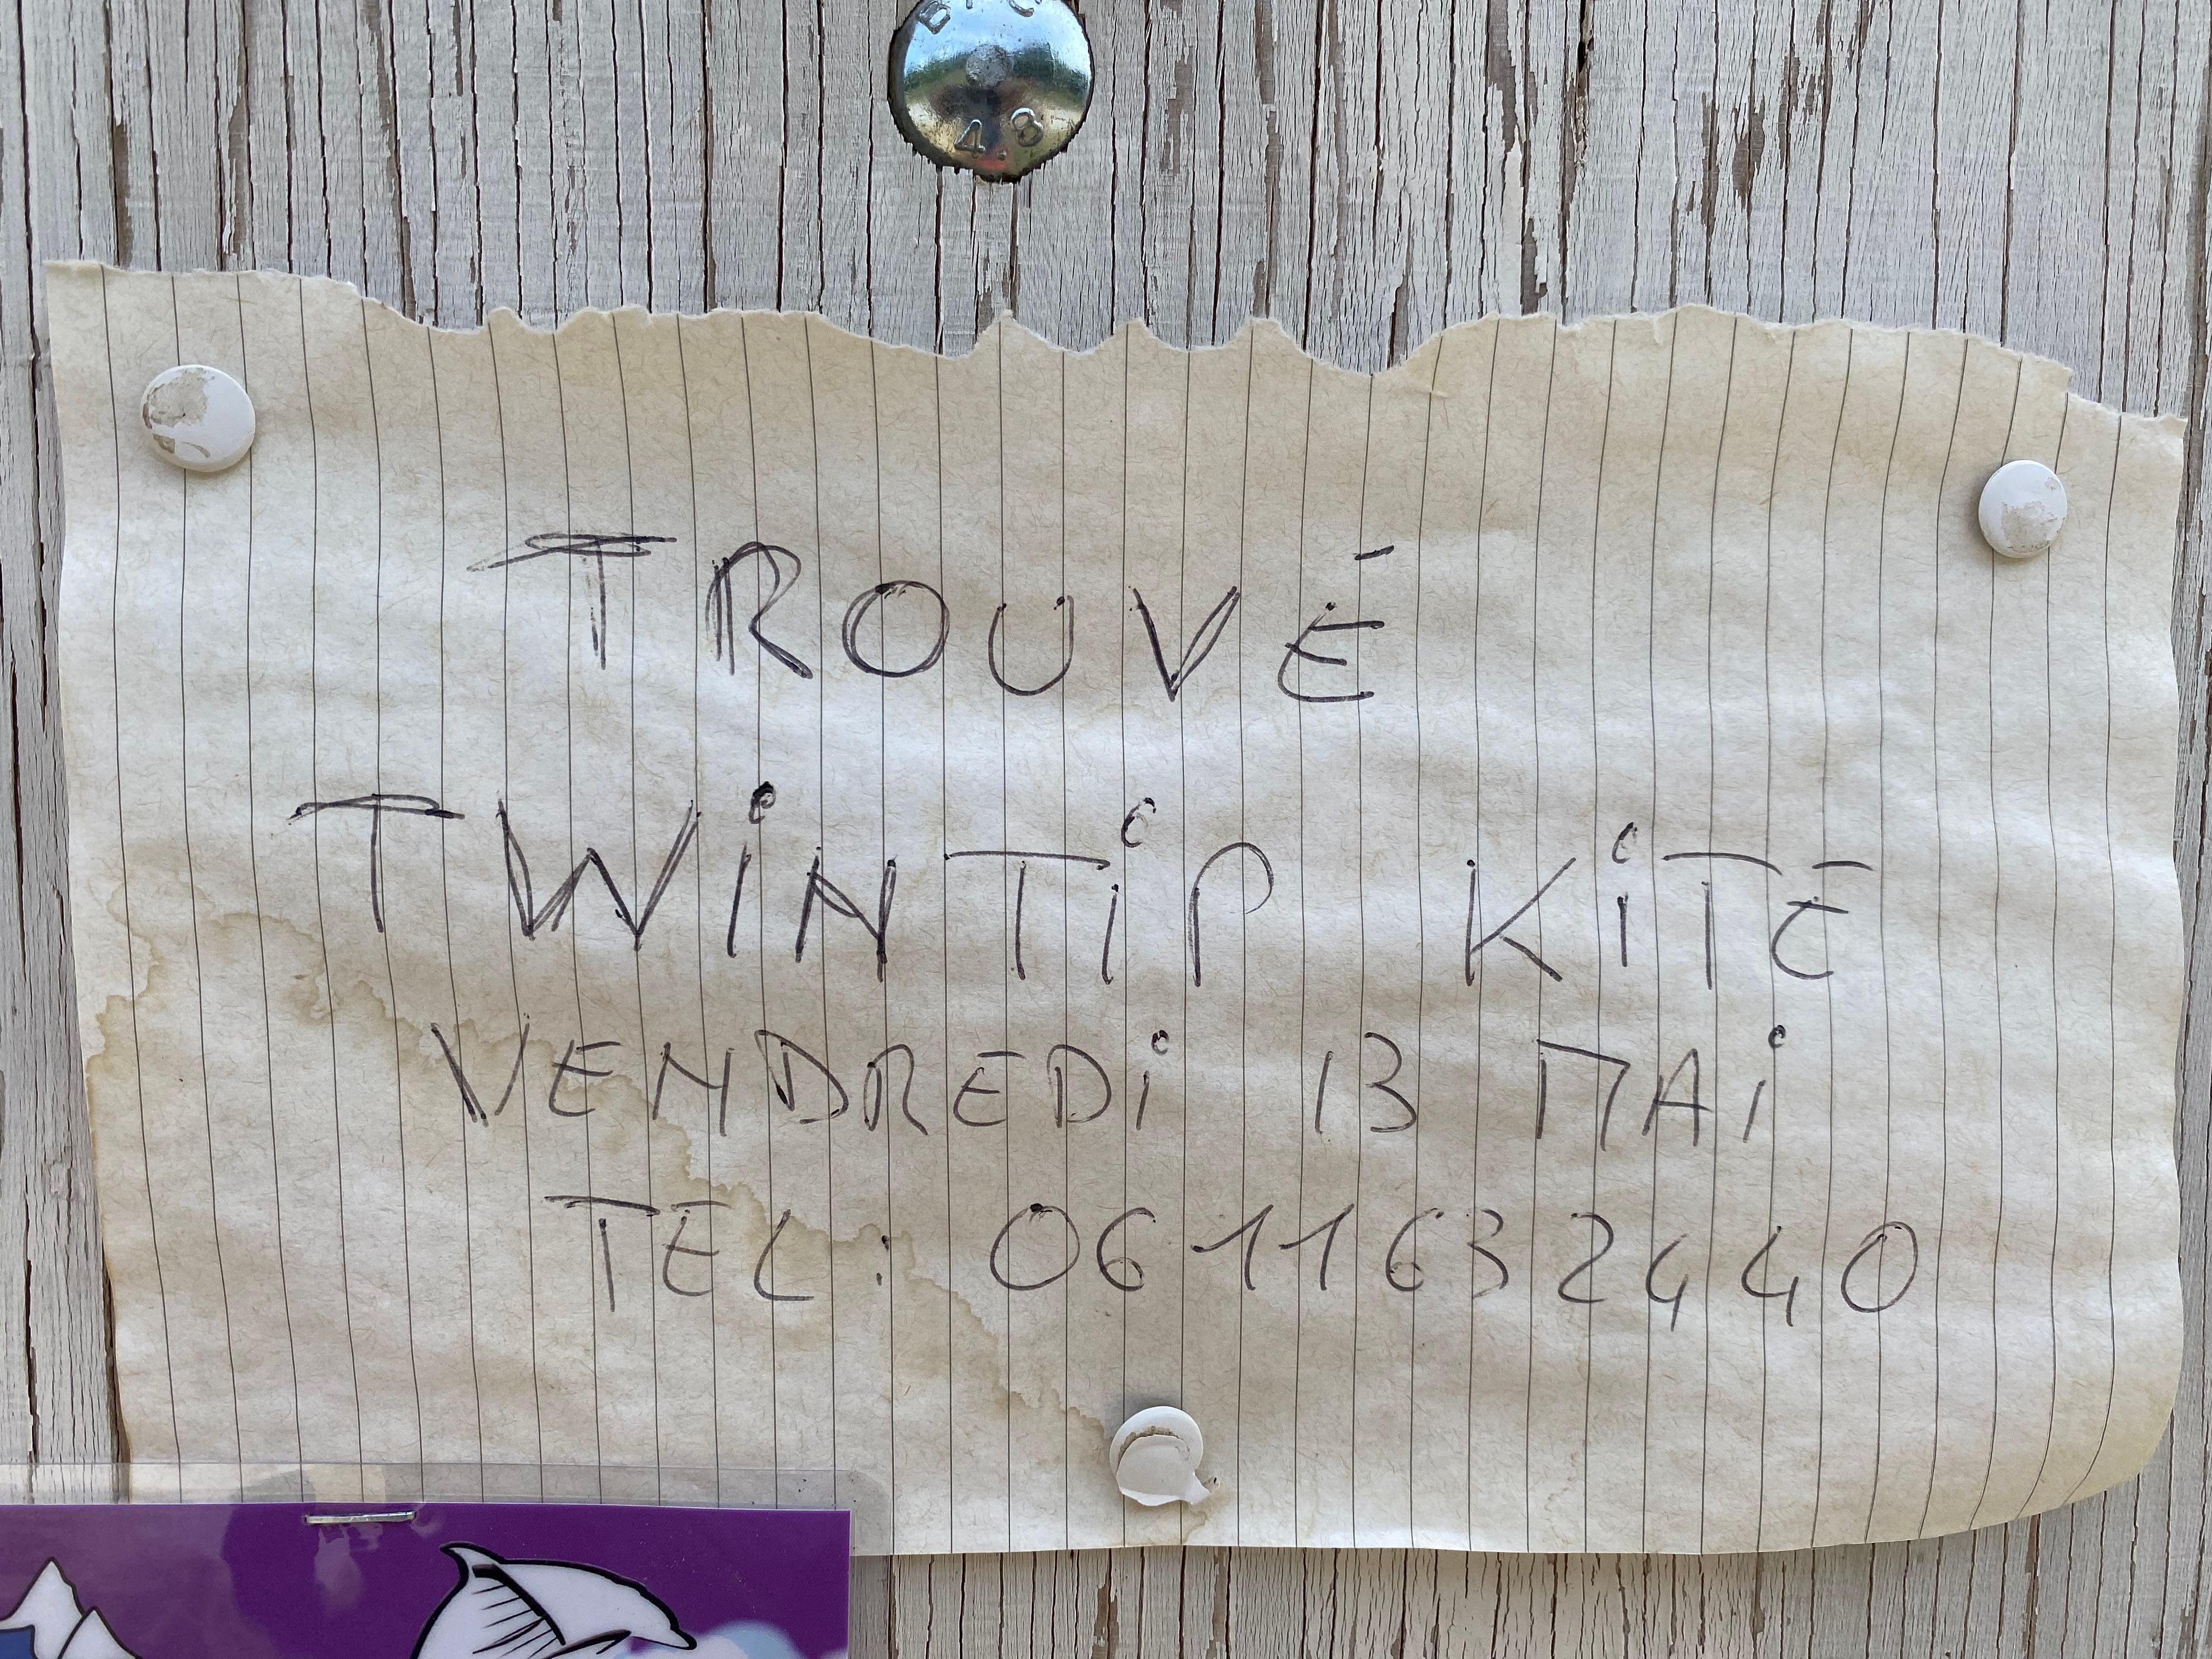 4.8
TROUVÉ
TWiNTiP KiTE
VENDREDi 13 MAi
TEL : 0611632440